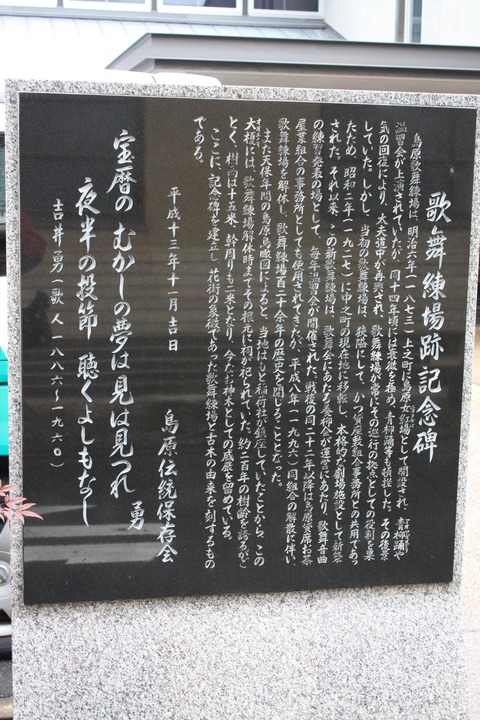 歌舞練場跡記念碑
島原歌舞練場は、明治六年(一八七三)上之町に島原女紅場として開設され、青柳踊や
温習会が上演されていたが、同十四年頃には衰微を極め、青柳踊等も頓挫した。その後景
気の回復により、太夫道中が再興され、歌舞練場が常にその巡行の拠点としての役割を果
していた。しかし、当初の歌舞練場は、狭隘にして、かつ貸座敷組合事務所との共用であっ
たため、昭和二年(一九二七)に中之町の現在地に移転し、本格的な劇場施設として新築
された。それ以来、この新歌舞練場は、歌舞会にあたる養柳会が運営にあたり、歌舞音曲
の練習発表の場として、毎年温習会が開催された。戦後の同二十二年以降は島原貸席お茶
屋業組合の事務所としても使用されてきたが、平成八年(一九九六)同組合の解散に伴い
歌舞練場を解体し、歌舞練場百二十余年の歴史を閉じることとなった。
また天保年間の島原鳥瞰図によると、当地はもと稲荷社が鎮座していたことから、この
大榎には、歌舞練場解体時までその根元に祠が祀られていた。約三百年の樹齢を誇るがご
とく、樹高は十五米、幹周りも二米となり、今なお神木としての威厳を留めている。
ここに、記念碑を建立し、花街の象徴であった歌舞練場と古木の由来を刻するもの
である。
平成十三年十一月吉日
島原伝統保存会
宝暦の むかしの夢は見は見つれ 勇
夜半の投節 聴くよしもなし
吉井勇(歌人 一八八六~一九六〇)